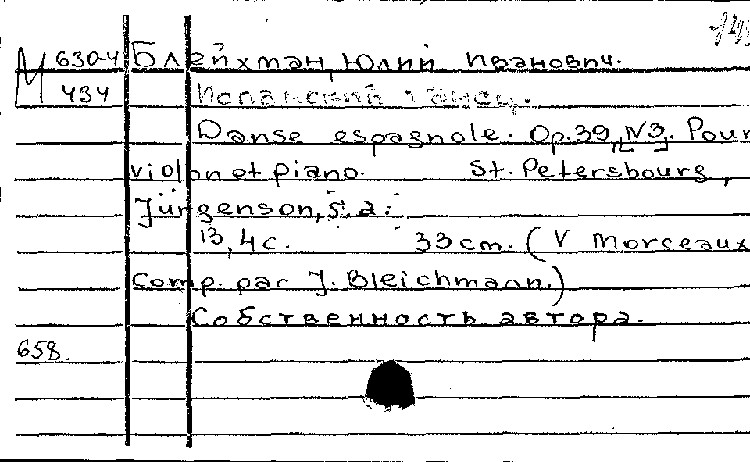 М 630-4 Блейхман, Юлий Иванович.
434 Испанский танец.
Danse espagnole. Op.39, N3. Pour
violon et piano. St. Petersbourg,
Jürgenson, s.a.
13, 4 с. 33 cm. (V Morceaux
comp. par J. Bleichmann.)
Собственность автора.
658.